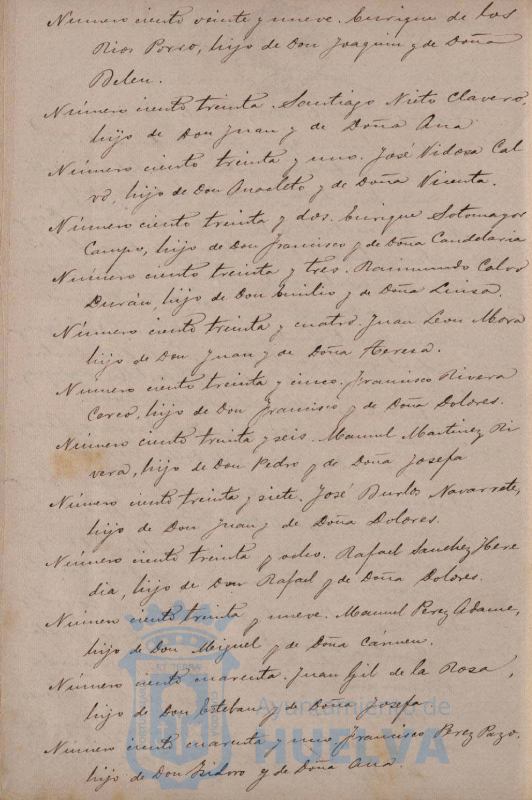 Número ciento veinte y nueve. Enrique de los
Rios Porro, hijo de Don Joaquin y de Doña
Belen.
Número ciento treinta. Santiago Nieto Clavero
hijo de Don Juan y de Doña Ana
Número ciento treinta y uno. José Vidosa Cal
vo, hijo de Don Anacleto y de Doña Vicenta.
Número ciento treinta y dos. Enrique Sotomayor
Campo, hijo de Don Francisco y de Doña Candelaria
Número ciento treinta y tres. Raimundo Calvo
Durán hijo de Don Emilio y de Doña Luisa.
Número ciento treinta y cuatro. Juan Leon Mora
hijo de Don Juan y de Doña Teresa.
Número ciento treinta y cinco. Francisco Rivera
hijo de Don Francisco y de Doña Dolores.
Número ciento treinta y seis. Manuel Martinez Ri
vera, hijo de Don Pedro y de Doña Josefa
Número ciento treinta y siete. José Burlo Navarrete,
hijo de Don Juan y de Doña Dolores.
Número ciento treinta y ocho. Rafael Sanchez Here
dia, hijo de Don Rafael y de Doña Dolores.
Número ciento treinta y nueve. Manuel Perez Adame,
hijo de Don Miguel y de Doña Cármen.
Número ciento cuarenta. Juan Gil de la Rosa,
hijo de Don Esteban y de Doña Josefa
Ayuntamiento de
HUELVA
Número ciento cuarenta y uno Francisco Perez Pazo,
hijo de Don Isidoro y de Doña Ana.